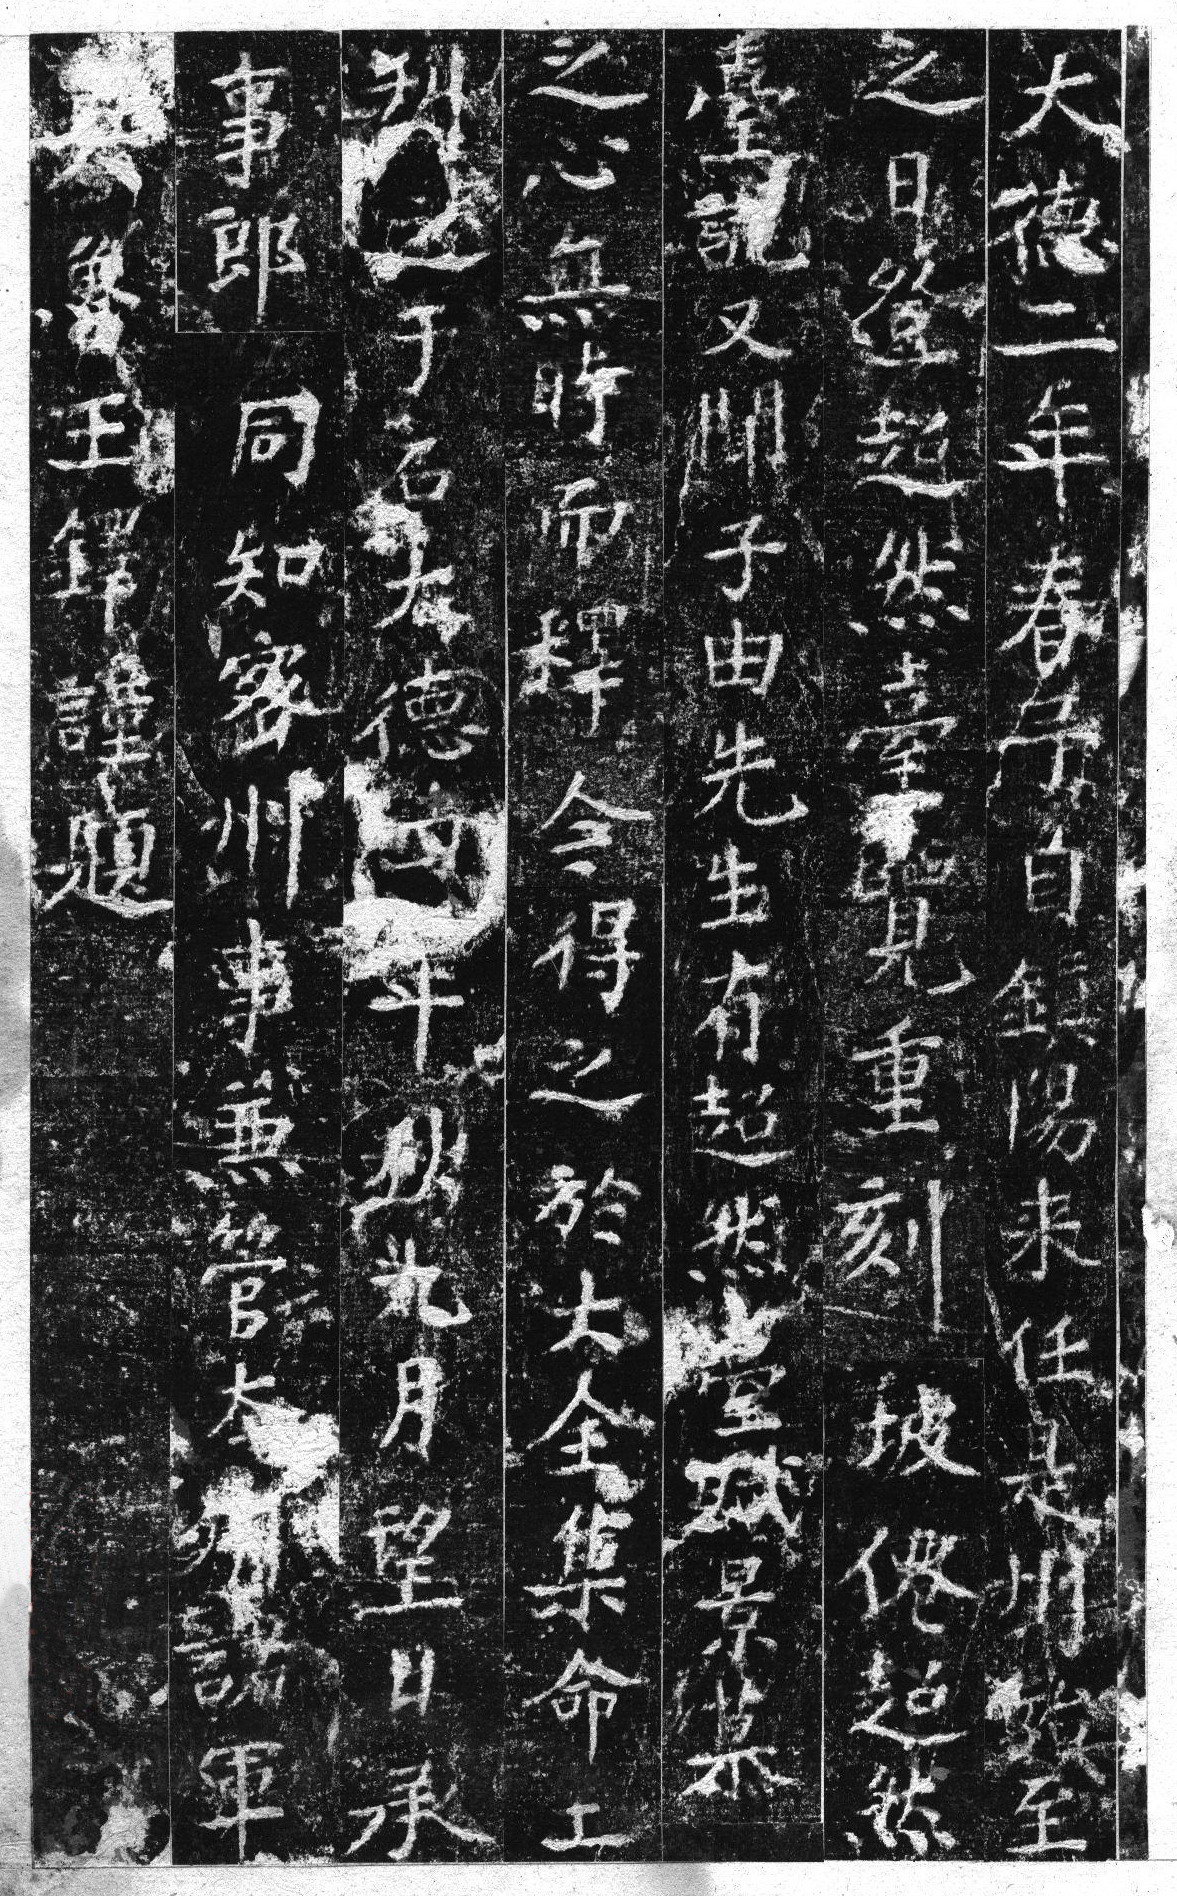 大德二年春予自鎮陽来任是州始至
之日登超然臺覽見重刻坡僊超然
臺記又聞子由先生有超然臺賦景慕
之心無時而釋今得之於大全集命工
刊之于石大德四年九月望日承
事郎同知密州事兼管本諸軍
奥魯王鐸謹題